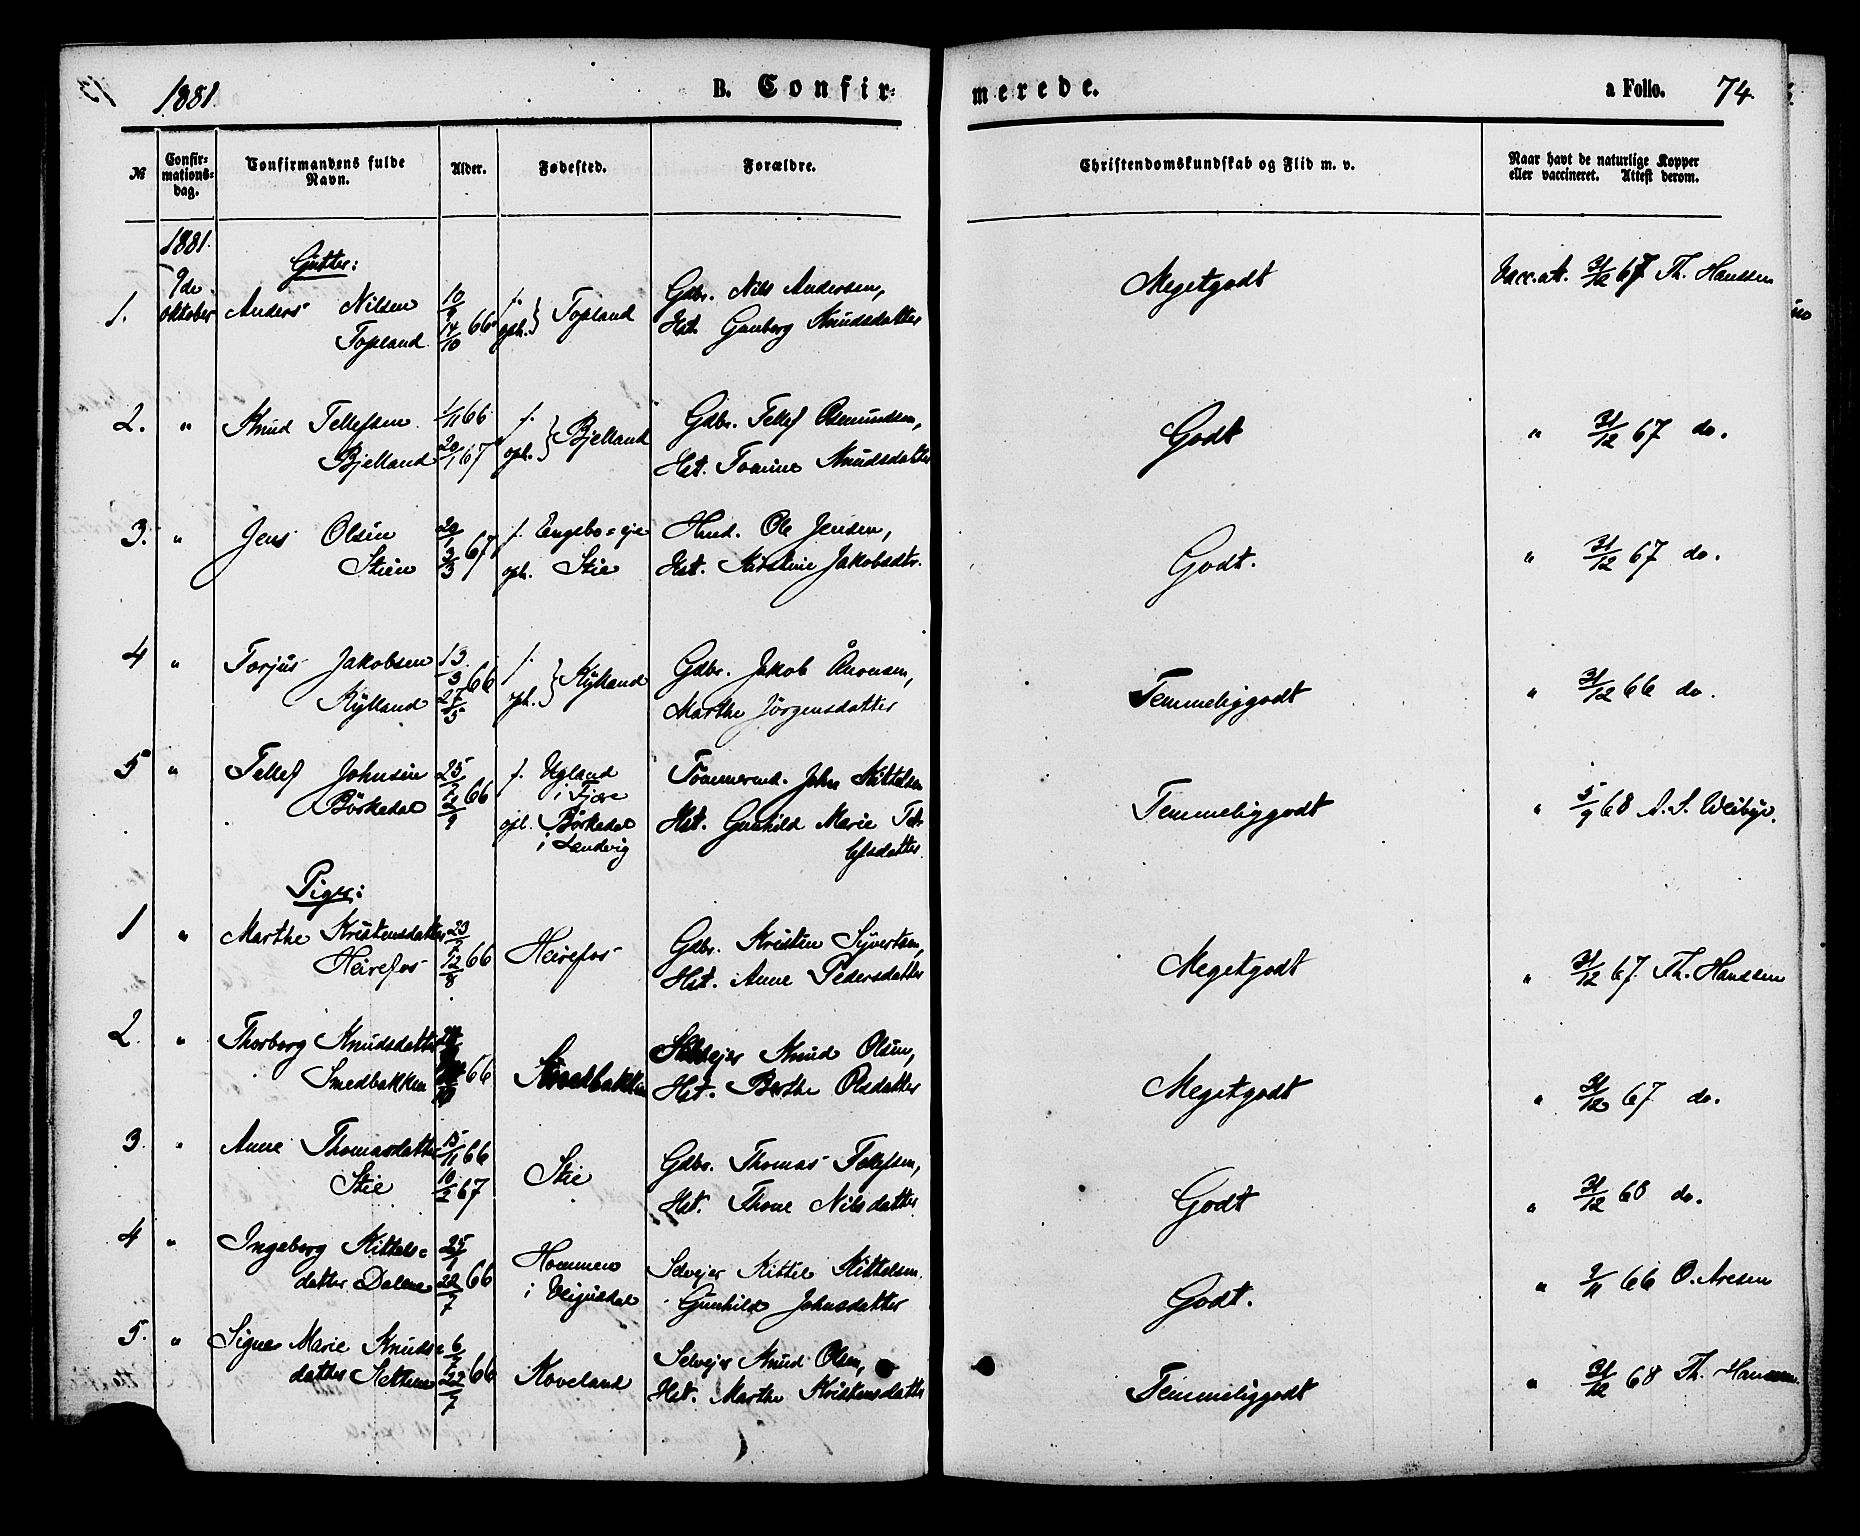 1881
B. Confir-
merede.
a Folio. 74
№
Confir-
mations-
dag.
Confirmandens fulde
Navn.
Alder.
Fødested.
Forældre.
Christendomskundskab og Flid m. v.
Naar havt de naturlige Kopper
eller vaccineret. Attest derom.
1881.
Gutter:
1. 9de oktober Anders Nilsen Topland 10/9 14/10 66 f. oph. } Topland Gdbr. Nils Andersen, Hst. Gunborg Knudsdatter Megetgodt Vacc. at. 31/12 67 Th. Hanssen
2. " Knud Tellefsen Bjelland 1/11 66 20/1 67 f. oph. } Bjelland Gdbr. Tellef Osmundsen, Hst. Tomine Knudsdatter Godt " 31/12 67 do.
3. " Jens Olsen Stien 20/1 3/3 67 f. Engebo=eje oph. Stie Hmd. Ole Jensen, Hst. Kirstine Jakobsdtr. Godt. " 31/12 67 do.
4 " Torjus Jakobsen Kylland 13/3 27/5 66 f. oph. } Kylland Gdbr. Jakob Åvonsen, Marthe Jörgensdatter Temmeliggodt " 31/12 66 do.
5 " Tellef Johnsen Börkedal 25/7 2/9 66 f. Ugland i Fjære opl. Börkedal i Landvig Tömmermd. John Kittelsen Hst. Gunhild Marie Tellefsdatter Temmeliggodt " 5/9 68 A. S. Weibye.
Piger:
1 " Marthe Kristensdatter Heirefos 23/7 12/8 66 Heirefos Gdbr. Kristen Syvertsen, Hst. Anne Pedersdatter Megetgodt " 31/12 67 Th. Hanssen
2. " Thorborg Knudsdatter Smedbakken 66 Smedbakken Selvejer Knud Olsen, Hst. Berthe Olsdatter Megetgodt " 31/12 67 do.
3. " Anne Thomasdatter Stie 15/11 66 10/2 67 Stie Gdbr. Thomas Tellefsen, Hst. Thone Nilsdatter Godt " 31/12 68 do.
4 " Ingeborg Kittels=datter Dalene 25/1 22/7 66 Hommen i Veigusdal Selvejer Kittil Kittelsen. Gunhild Johnsdatter Godt. " 9/11 66 O. Aresen
5. " Signe Marie Knuds=datter Setten 6/7 22/7 66 Koveland Selvejer Knud Olsen, Hst. Marthe Kristensdatter Temmeliggodt " 31/12 68 Th. Hanssen